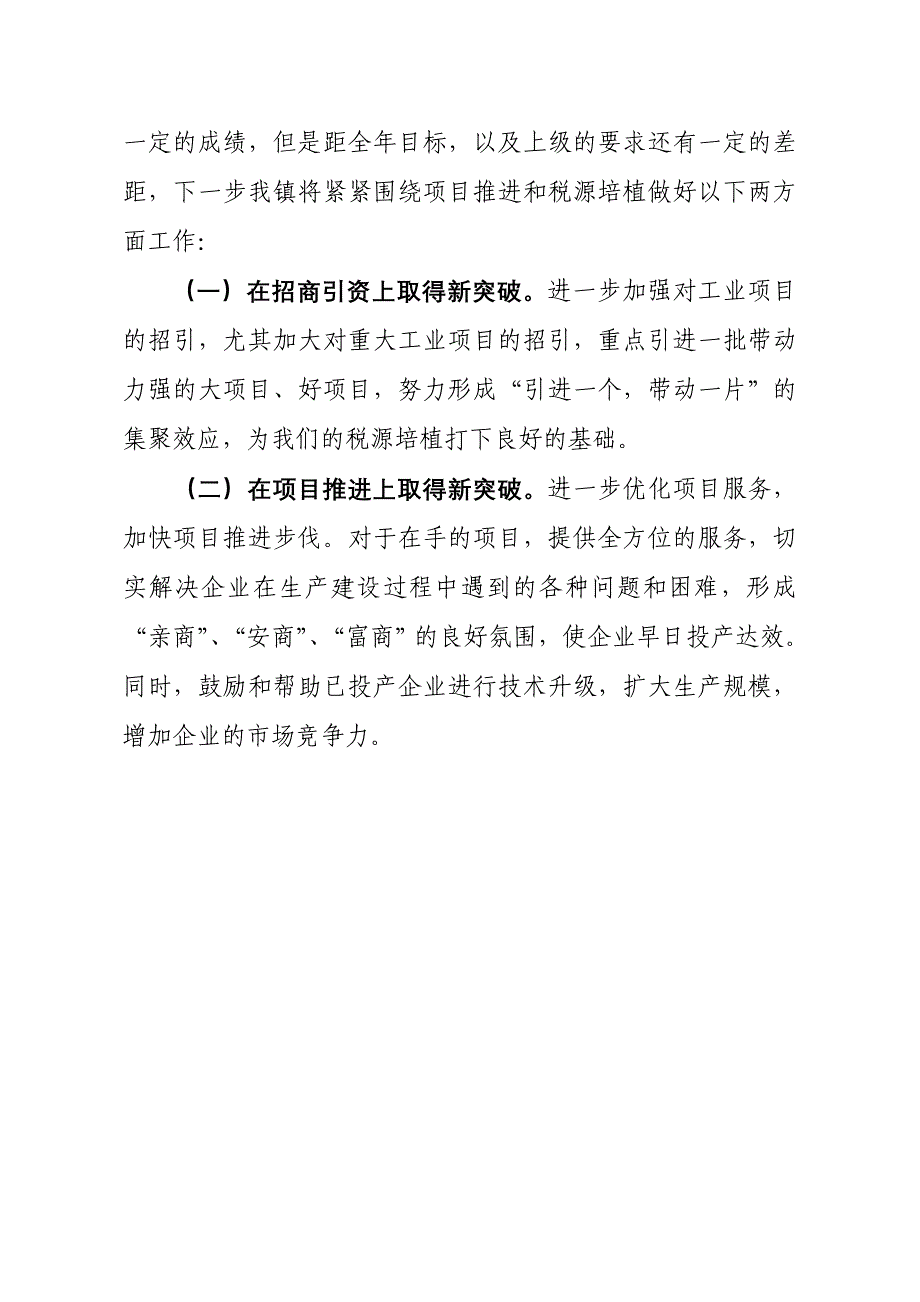 一定的成绩，但是距全年目标，以及上级的要求还有一定的差
距，下一步我镇将紧紧围绕项目推进和税源培植做好以下两方
面工作：
（一）在招商引资上取得新突破。进一步加强对工业项目
的招引，尤其加大对重大工业项目的招引，重点引进一批带动
力强的大项目、好项目，努力形成“引进一个，带动一片”的
集聚效应，为我们的税源培植打下良好的基础。
（二）在项目推进上取得新突破。进一步优化项目服务，
加快项目推进步伐。对于在手的项目，提供全方位的服务，切
实解决企业在生产建设过程中遇到的各种问题和困难，形成
“亲商”、“安商”、“富商”的良好氛围，使企业早日投产达效。
同时，鼓励和帮助已投产企业进行技术升级，扩大生产规模，
增加企业的市场竞争力。